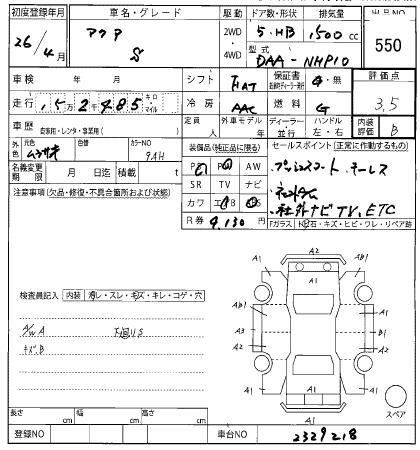 初度登録年月 車名・グレード 駆動 ドア数・形状 排気量 出品NO
26年 4月 アクア S 2WD・4WD 5・HB 1,500cc 550
型式 DAA-NHP10
車検 年 月 シフト FAT 保証書 有・無 評価点 3.5
走行 1,5万2485 キロ・マイル 冷房 AAC 燃料 G
車歴 自家用・レンタ・事業用( ) 定員 人 外車モデル 年 ディーラー・並行 ハンドル 左・右 内装評価 B
外色 元色 ムラサキ カラーNO 9AH
装備品(純正品に限る) セールスポイント(正常に作動するもの)
名義変更期限 月 日迄 積載 t
AW
SR TV ナビ
カワ エアB
R券 9,130円
プッシュスタート キーレス
社外ナビ TV, ETC
注意事項(欠品・修復・不具合箇所および状態)
Fガラス 飛石・キズ・ヒビ・ワレ・リペア跡
検査員記入 内装 汚レ・スレ・キズ・キレ・コゲ・穴
A/W A 下回りS
キズ.B
A2
A1 AB1
AB1 A1
A3 A1
A2 A2
A1 A1
A1
スペア
長さ cm 幅 cm 高さ cm
登録NO 車台NO 2329218